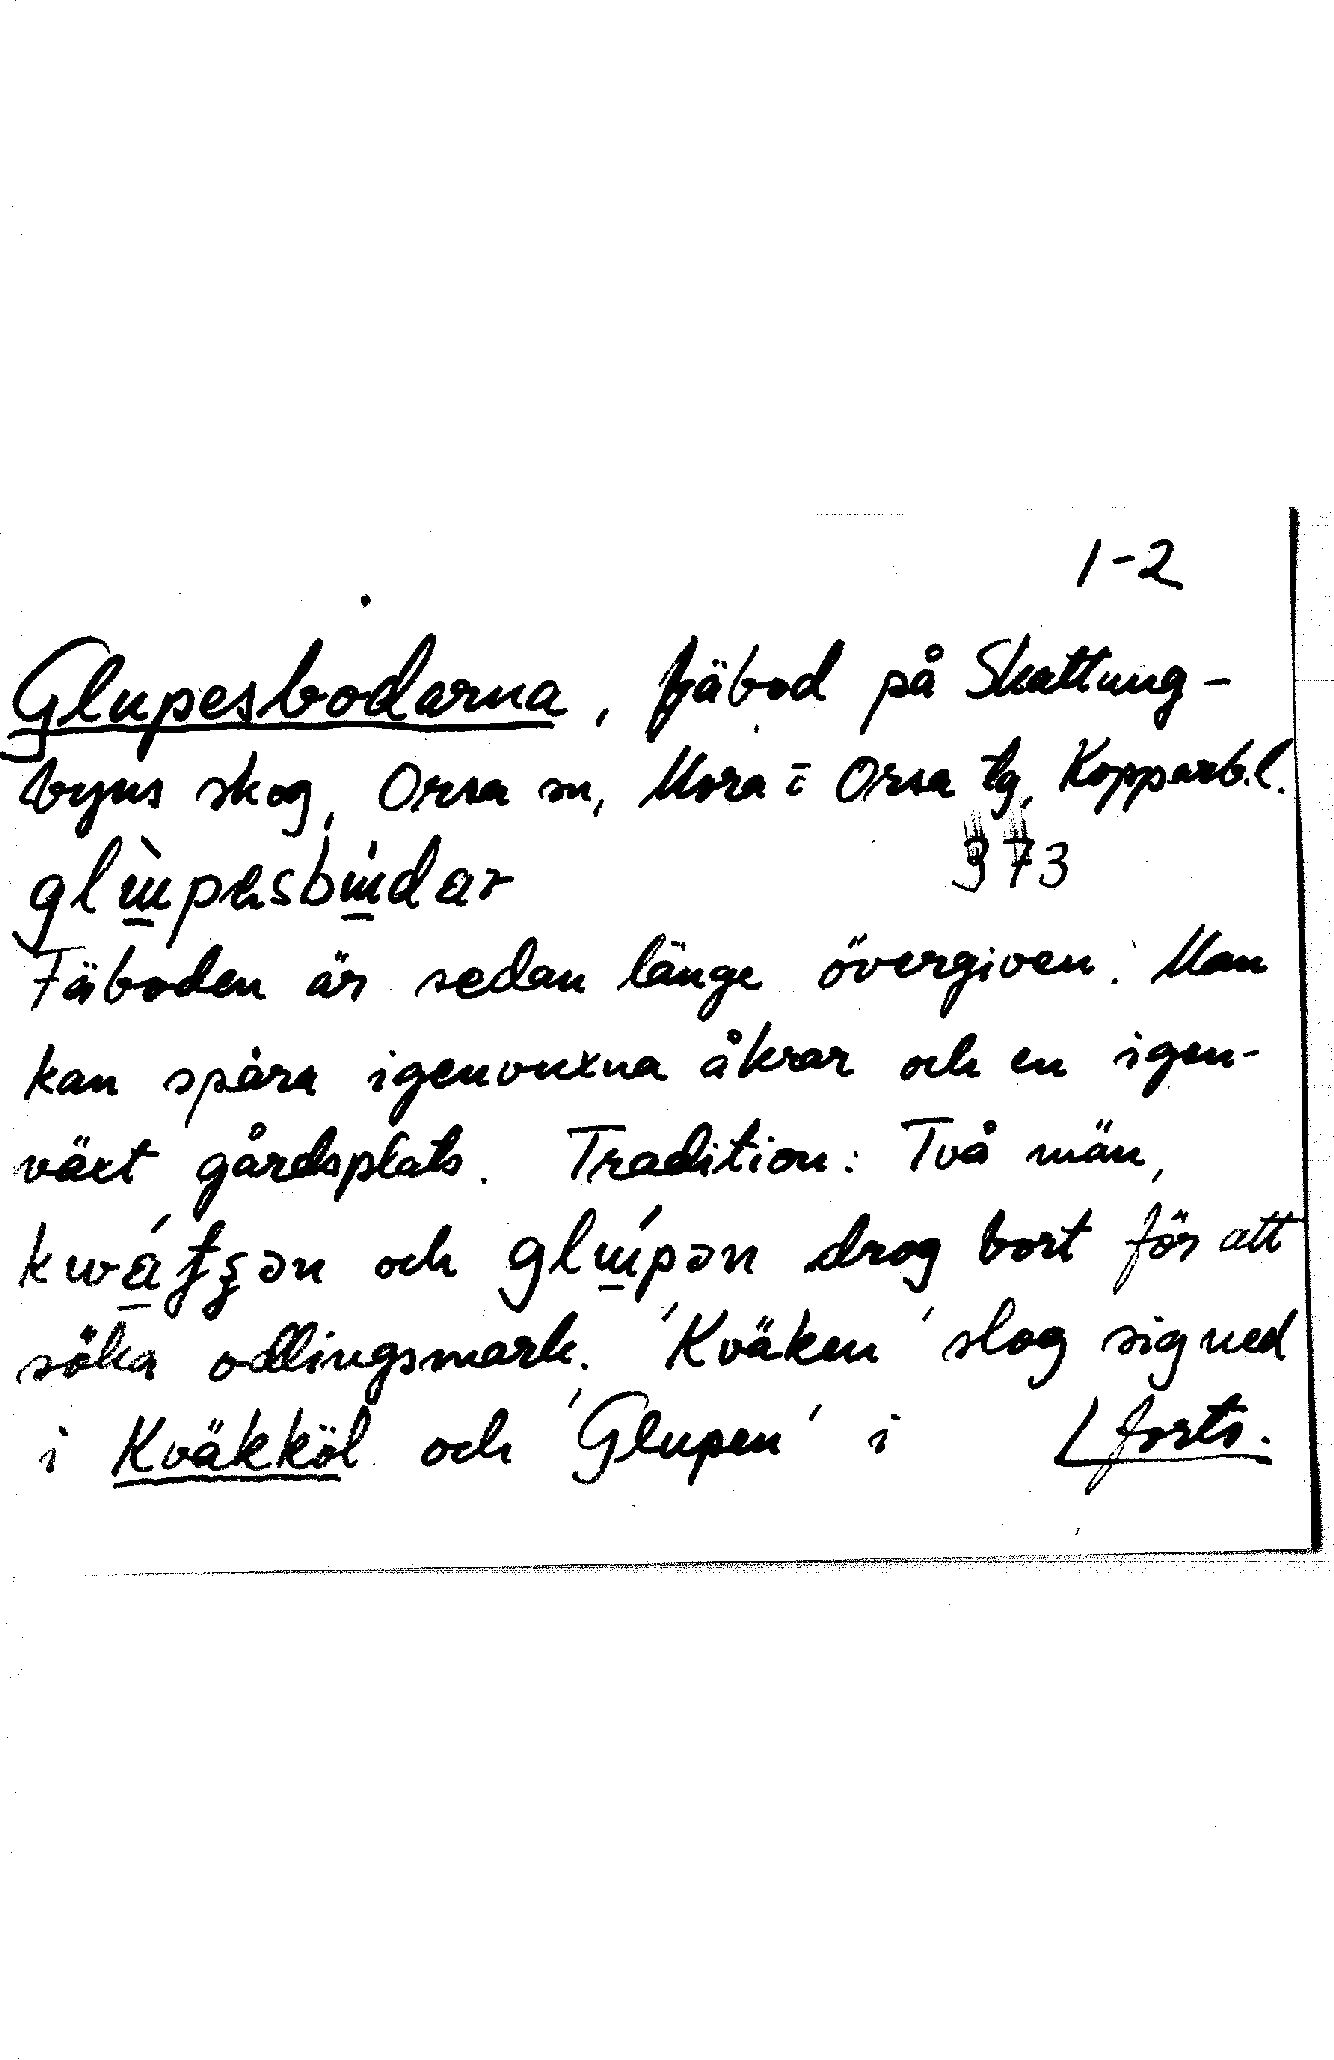 1-2
Glupesbodarna, fäbod på Skattung-
byns skog, Orsa sn, Mora o Orsa tg, Kopparb.l.
373
Fäboden är sedan länge övergiven. Man
kan spåra igenvuxna åkrar och en igen-
växt gårdsplats. Tradition: Två män,
och drog bort för att
söka odlingsmark. 'Kväken' slog sig ned
i Kväkköl och 'Glupen' i forts.